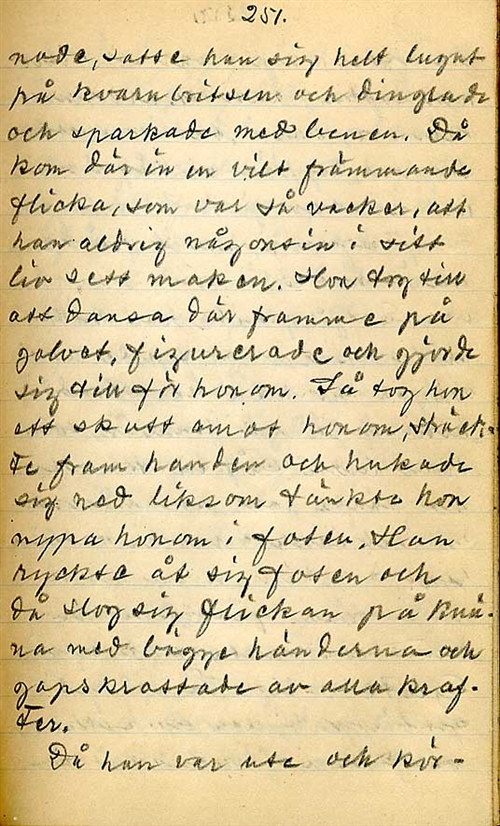 251.
nade, satte han sig helt lugnt
på kvarnbritsen och dinglade
och sparkade med benen. Då
kom där in en vilt främmande
flicka, som var så vacker, att
han aldrig någonsin i sitt
liv sett maken. Hon tog till
att dansa där framme på
golvet, figurerade och gjorde
sig till för honom. Så tog hon
ett skutt emot honom, sträck-
te fram handen och hukade
sig ned liksom tänkte hon
nypa honom i foten. Han
ryckte åt sig foten och
då slog sig flickan på knä-
na med bägge händerna och
gapskrattade av alla kraf-
ter.
Då han var ute och kör-